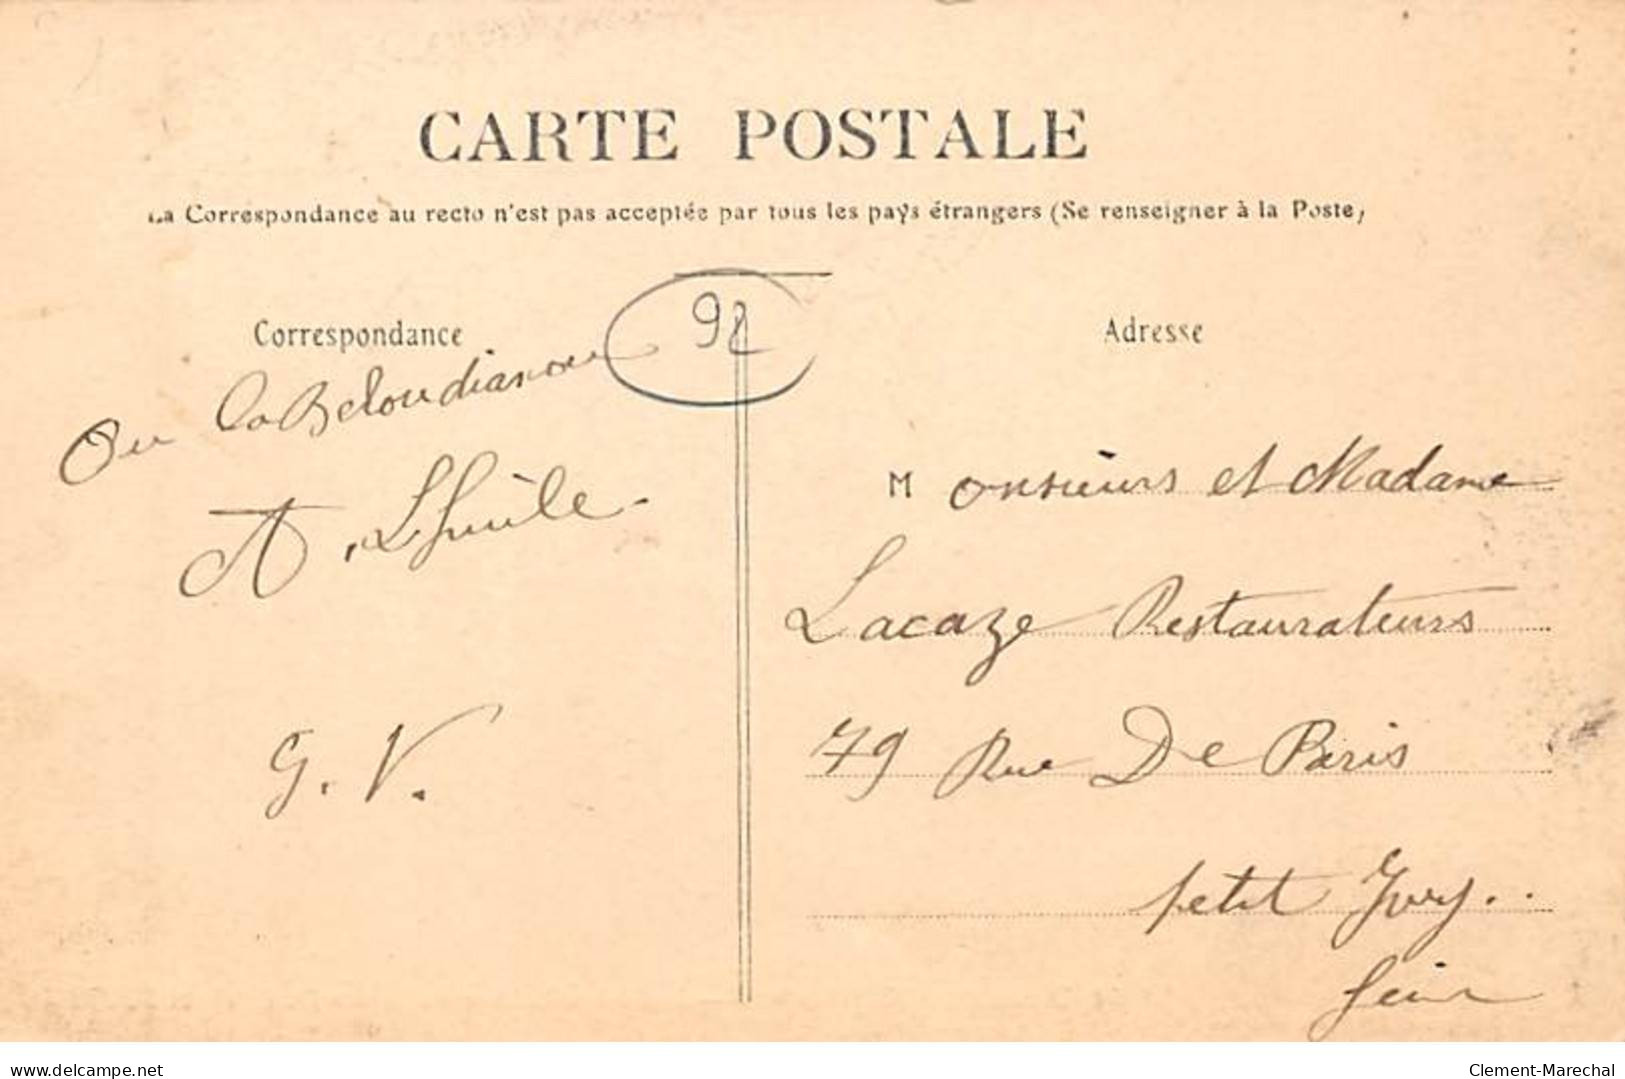 CARTE POSTALE
La Correspondance au recto n'est pas acceptée par tous les pays étrangers (Se renseigner à la Poste)
Correspondance
A. Lhuile
G. V.
92
Adresse
Monsieurs et Madame
Lacaze Restaurateurs
79 Rue De Paris
petit Ivry..
Seine
www.delcampe.net
Clement-Marechal